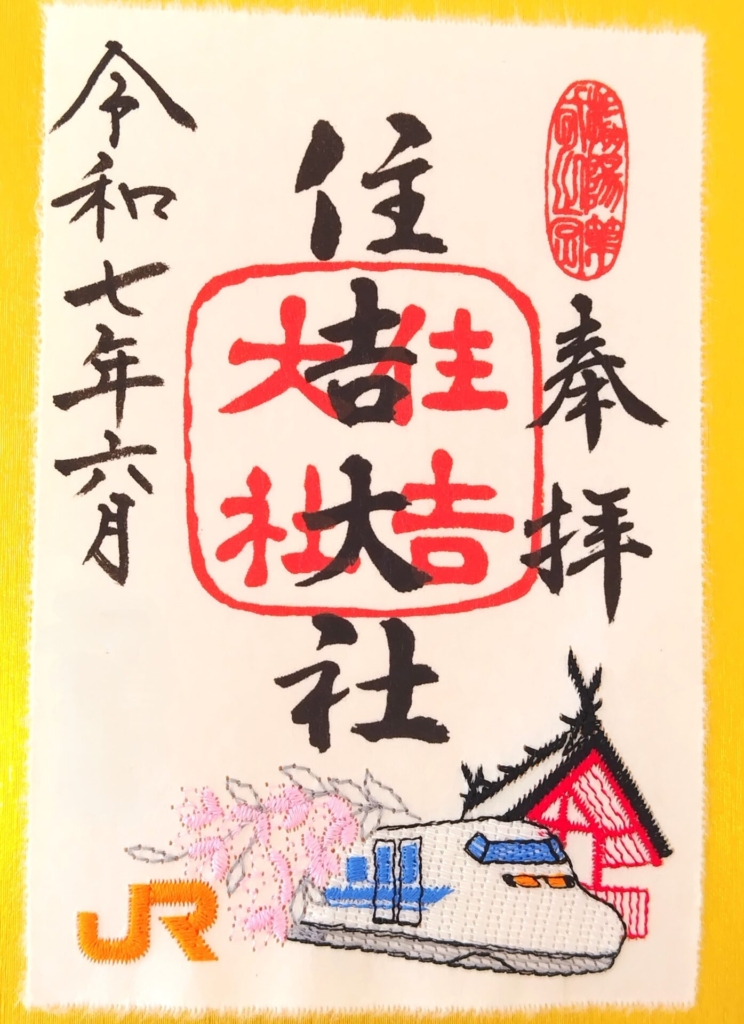 奉拝
住吉大社
住吉大社
令和七年六月
JR